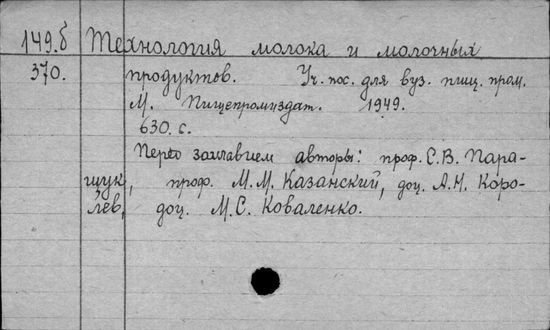 149.б Технология молока и молочных
370. продуктов. Уч. пос. для вуз. пищ. пром.
М. Пищепромиздат. 1949.
630. с.
Перед заглавием авторы: проф. С.В. Пара-
щук, проф. М.М. Казанский, доц. А.Н. Коро-
лев, доц. М.С. Коваленко.